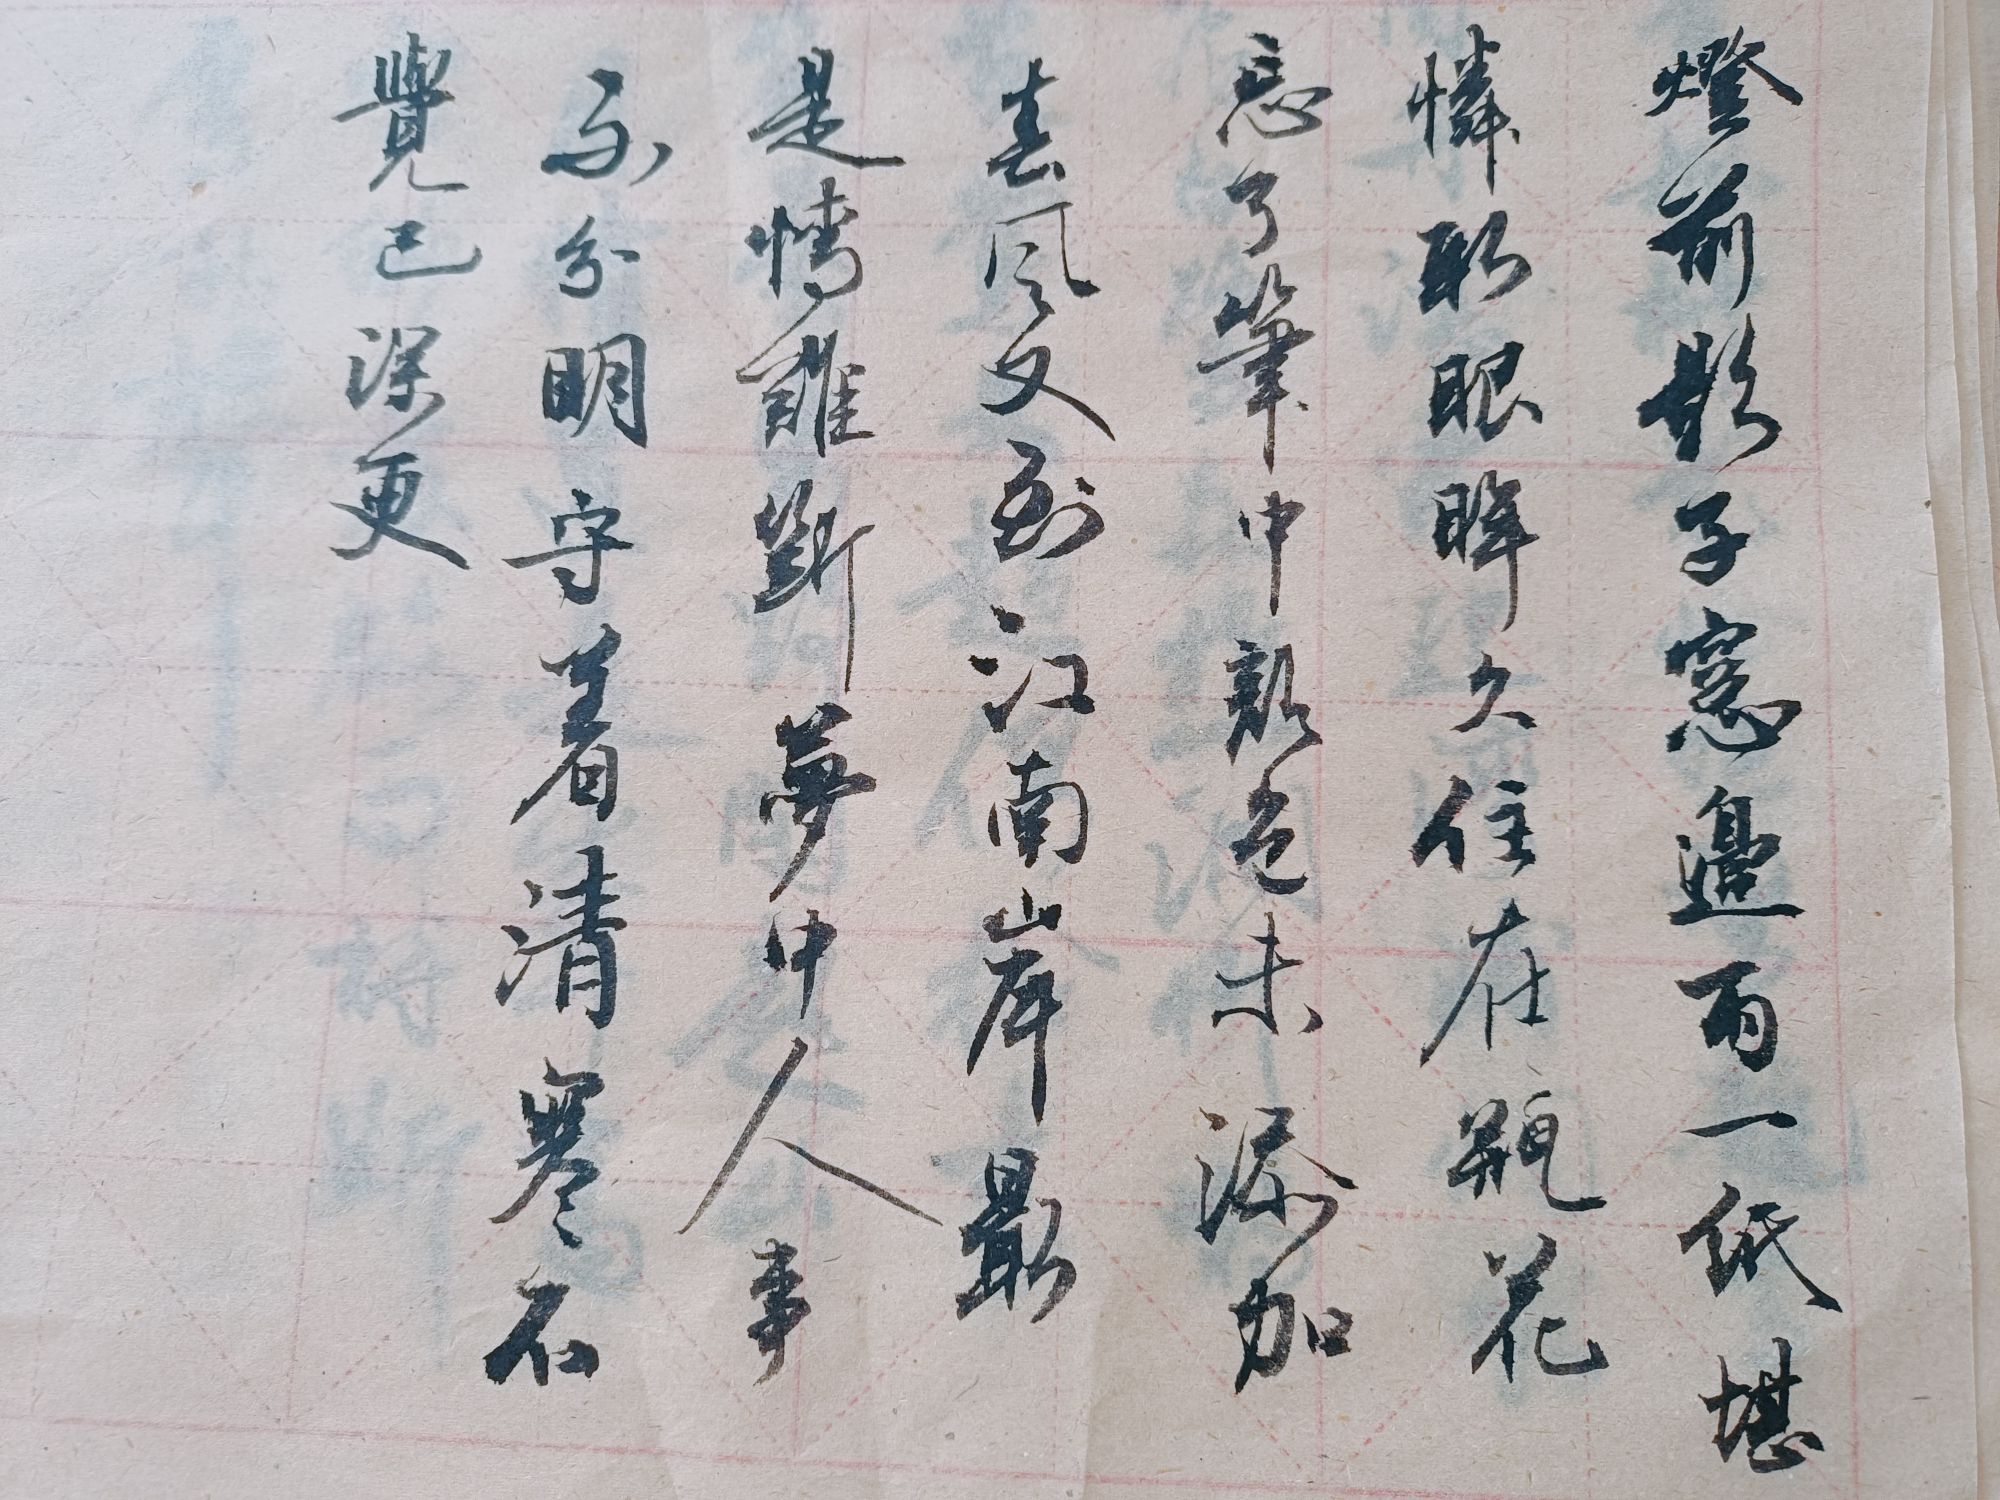 燈前影子窓邊雨一紙堪
憐形眼眸久住在瓶花
忘了筆中顏色未添加
春風又到江南岸最
是情誰斷夢中人事
不分明守著清寒不
覺已深更